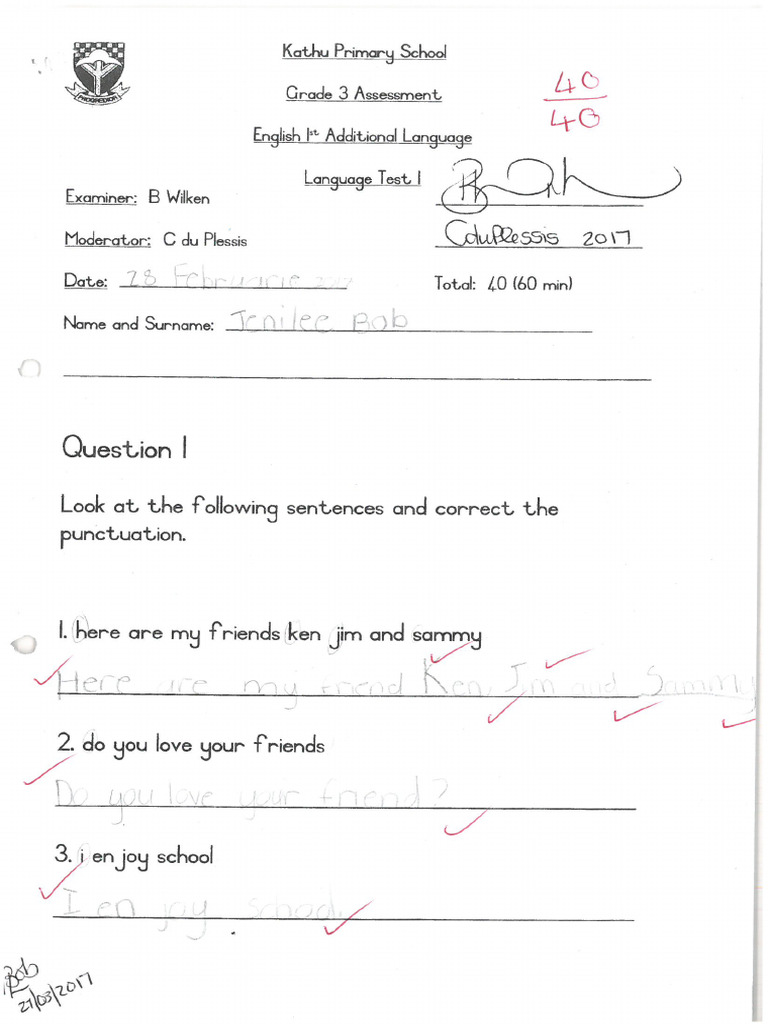 PROGREDIOR
Kathu Primary School
Grade 3 Assessment
40
40
English 1st Additional Language
Language Test 1
Examiner: B Wilken
Moderator: C du Plessis
CduPlessis 2017
Date: 28 Februarie 2017
Total: 40 (60 min)
Name and Surname: Jenilee Bob
Question 1
Look at the following sentences and correct the
punctuation.
1. here are my friends ken jim and sammy
Here are my friend Ken, Jim and Sammy
2. do you love your friends
Do you love your friend?
3. i en joy school
I en joy school.
Bob
27/03/2017